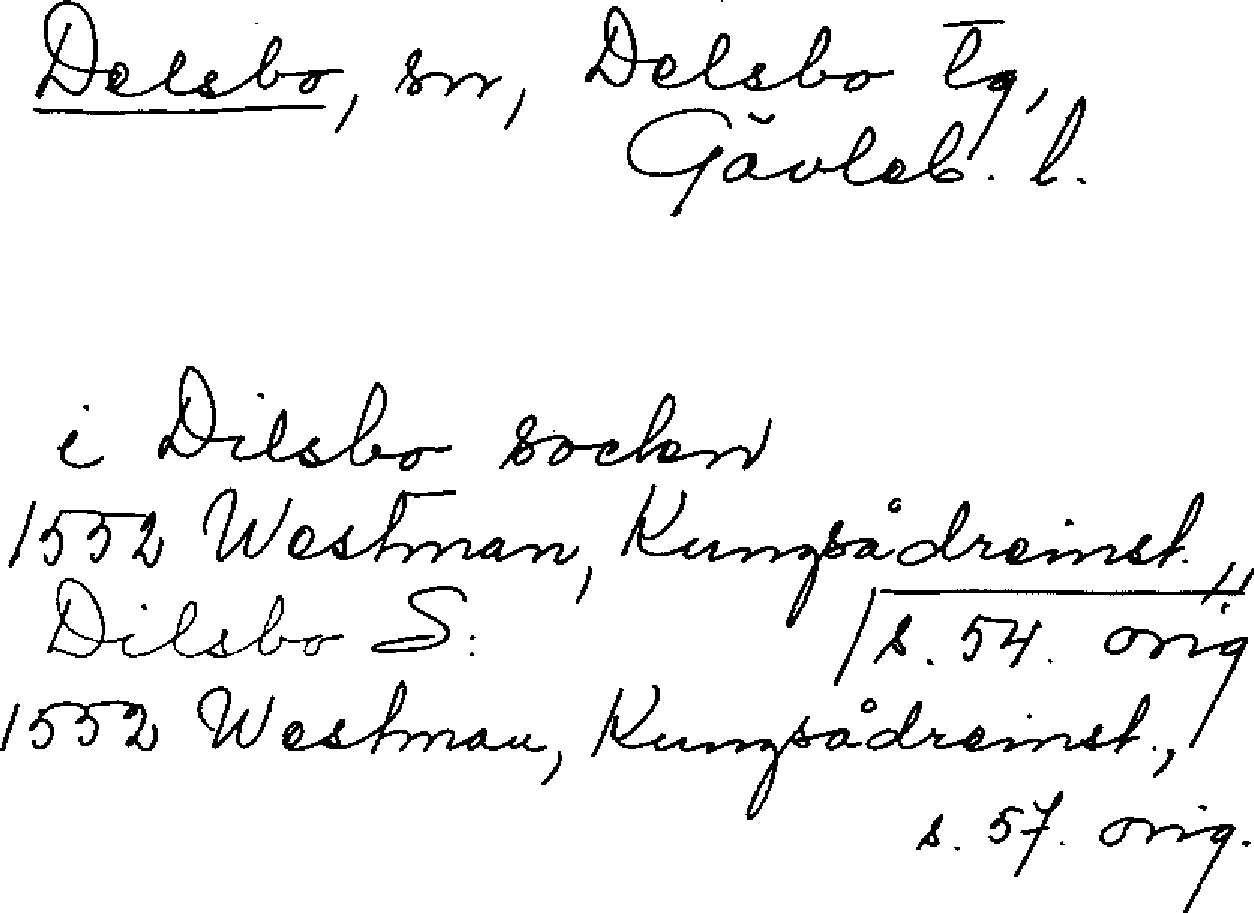 Delsbo, sn, Delsbo tg,
Gävleb. l.
i Dilsbo socken
1552 Westman, Kungsådreinst.,
s. 54. orig
Dilsbo S:
1552 Westman, Kungsådreinst.,
s. 57. orig.